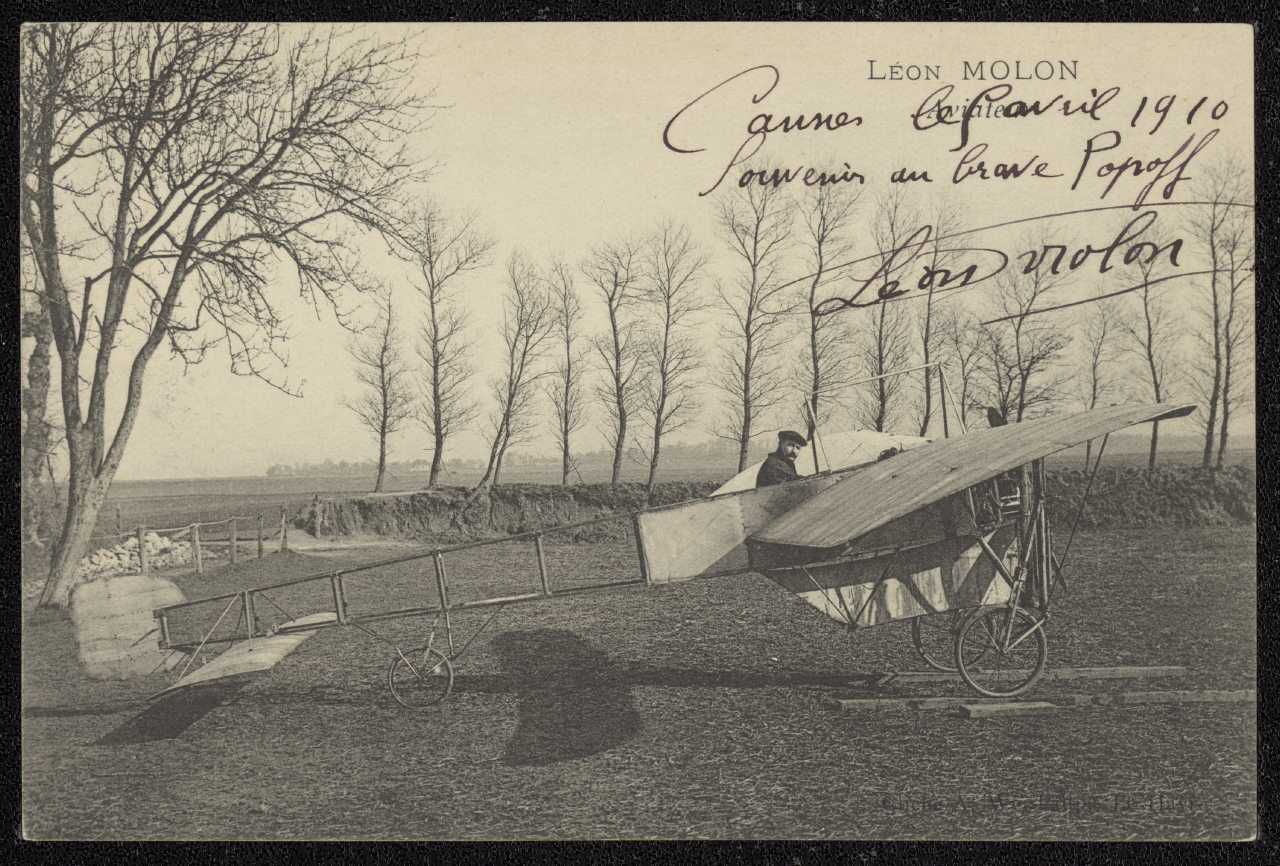 Léon MOLON
Aviateur
Cannes le 5 avril 1910
Souvenir au brave Popoff
Léon Molon
Cliché A. Le Havre